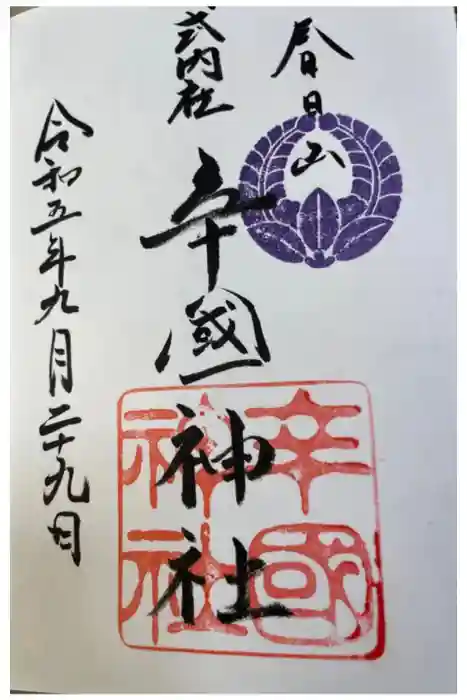 春日山
式内社
辛國神社
辛國神社
令和五年九月二十九日